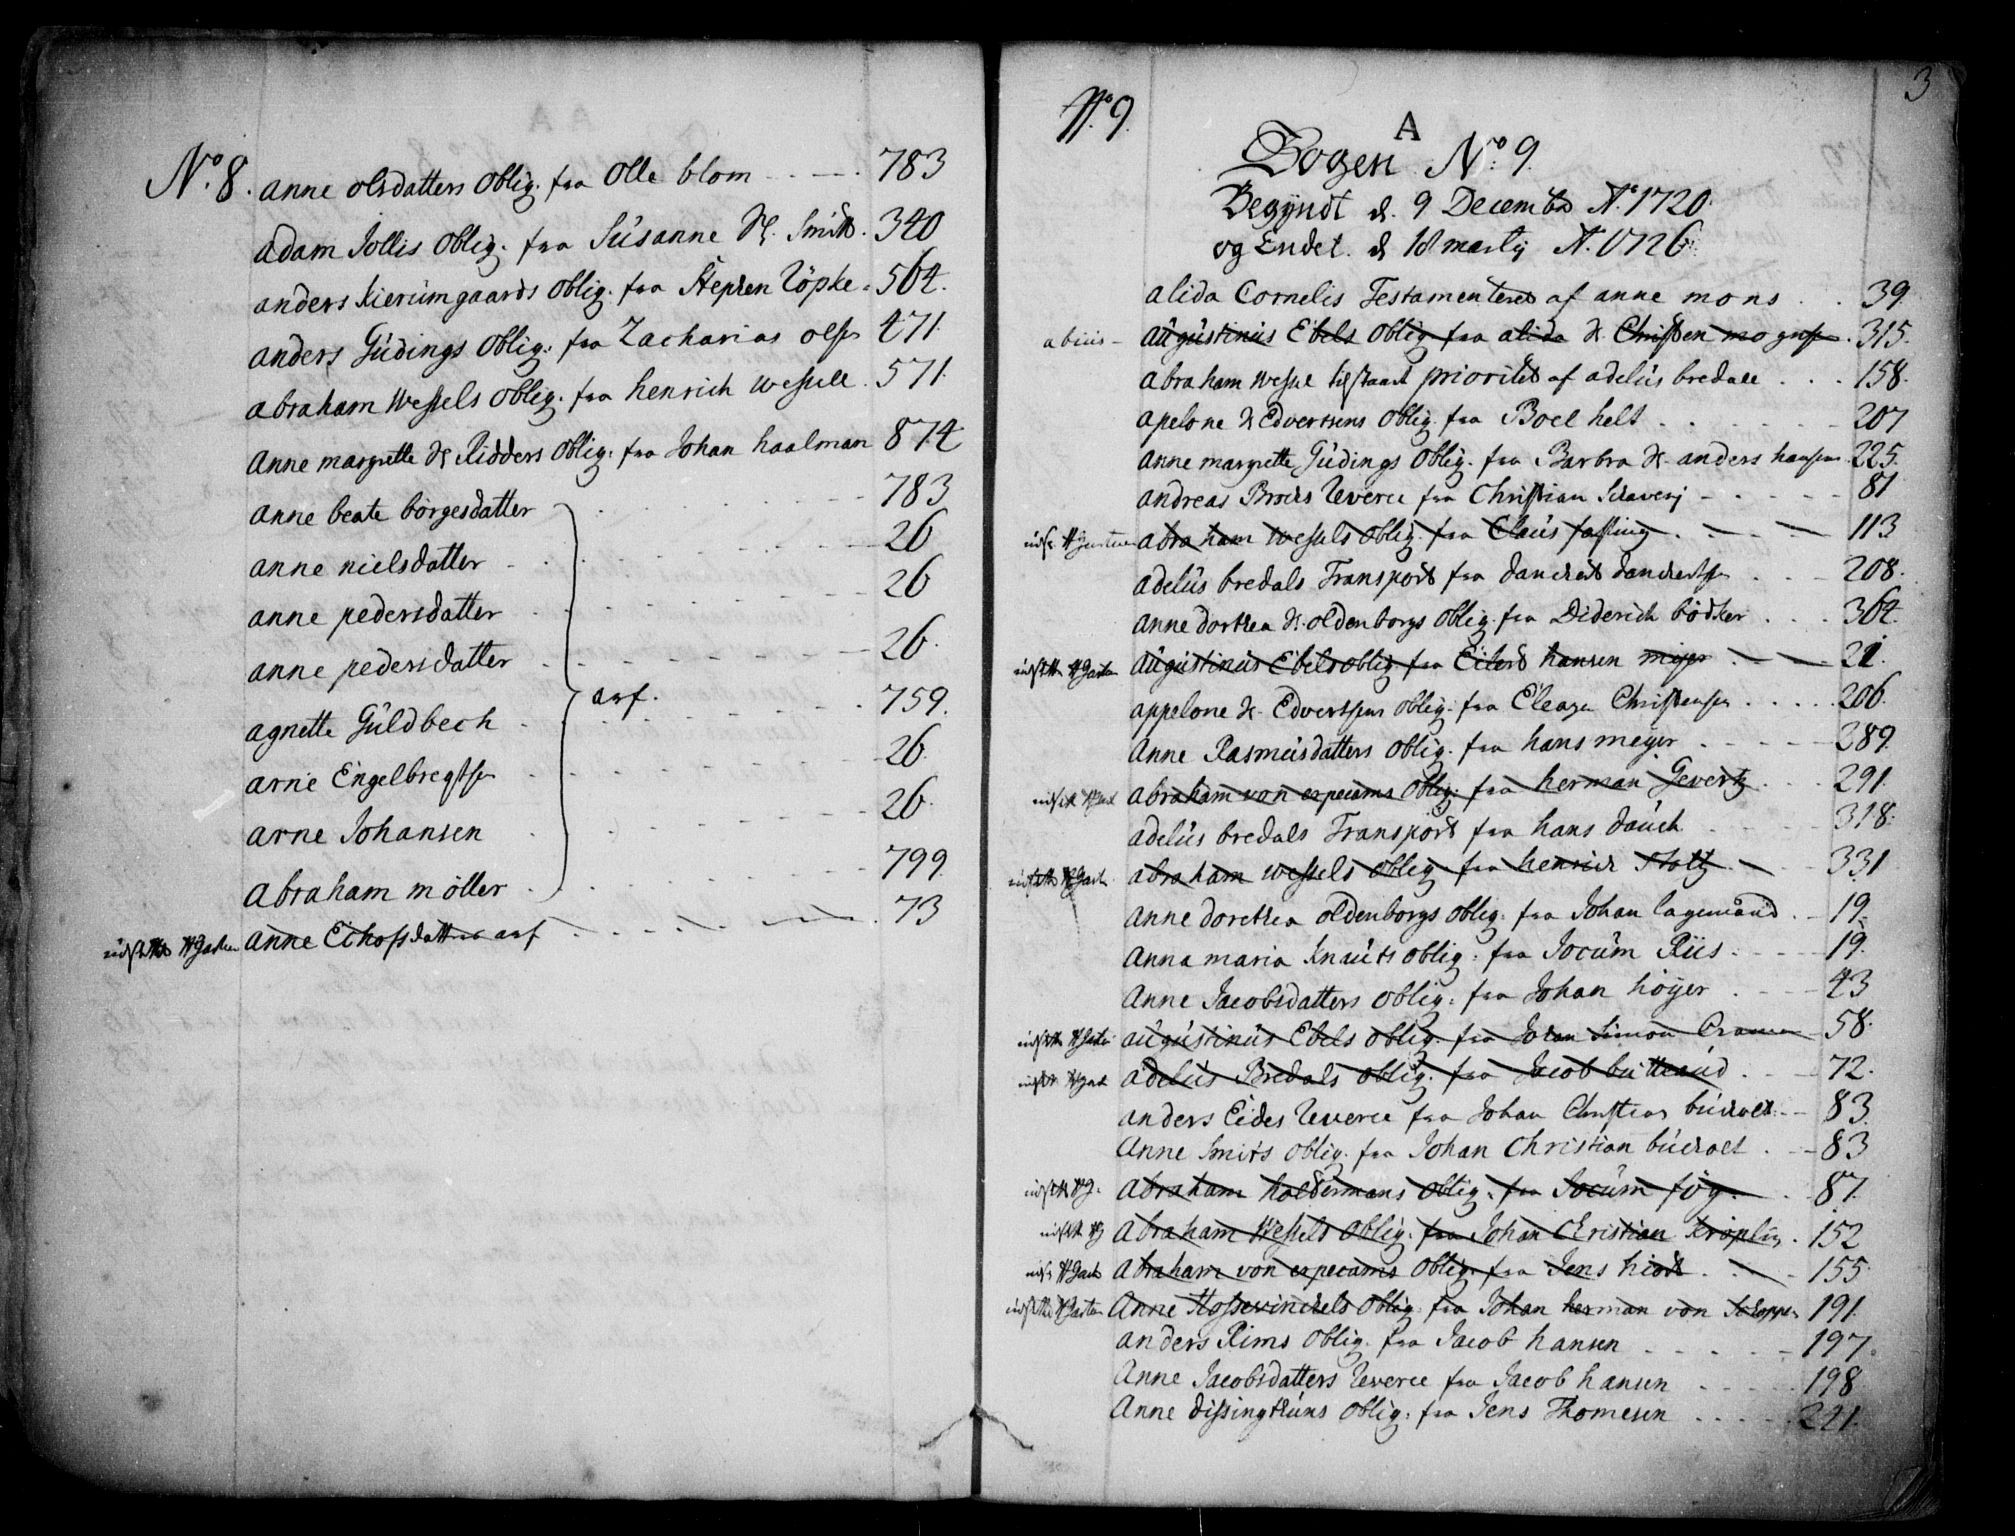 No. 8. anne olsdatters oblig. fra Olle blom 783
adam Jollis oblig. fra Susanne Sl. Smits. 340
anders kierumgaards oblig. fra Stephen Köpke. 564.
anders Gudings oblig. fra Zacharias ols 471.
abraham Wessels oblig. fra henrich wessell. 571.
Anne margrette Sl. Ridders oblig. fra Johan haalman 874
anne beate borgesdatter 783
anne nielsdatter 26
anne pedersdatter 26
anne pedersdatter 26.
arf.
agnette Guldbech 759.
arne Engelbregtsen 26.
arne Johansen 26.
Abraham moller 799.
anne datter arf 73
3
No. 9.
A
Bogen No. 9.
Begyndt d. 9 Decemb Ao. 1720.
og Endet d. 18 martij A. 1726.
alida Cornelis Testamenteret af anne mons 39.
augustinus Ebels oblig fra alida Sl. Christen mogns. 315.
Abraham Wessel tilstaaet prioritet af adelus bredall 158.
apelone Sl. Edvertsens oblig. fra Boel helt 207
Anne margrette Gudings oblig. fra Barbra Sl. anders hansen 225.
andreas Brochs Reverce fra Christian 81
abraham Wessels oblig. fra Claus fassing 113
adelus bredals Transport fra 208.
anne dortea Sl. oldenborgs oblig. fra Diderich bödker 364.
augustinus Ebels oblig fra Eilert hansen meyer 21.
appelone Sl. Edvertsens oblig. fra Christensen 206.
Anne Rasmusdatters oblig. fra hans meyer 389.
abraham von erpecoms oblig. fra herman Gevertz 291.
adelus bredals Transport fra hans dauch 318.
abraham Wessels oblig. fra henrich 331
anne dorethea oldenborgs oblig. fra Johan lagemand 19.
Anna maria Knauts oblig. fra Jocum Riis 19.
Anne Jacobsdatters oblig. fra Johan höyer 43
augustinus Ebels oblig. fra Johan Simon 58.
adelus Bredals oblig. fra Jacob 72.
anders Eides Reverce fra Johan Christian 83.
Anne Smits oblig. fra Johan Christian 83
abraham holdermans oblig. fra Jocum fog 87.
Abraham Wessels oblig. fra Johan Christian 152
Abraham von erpecoms oblig. fra Jens 155.
Anne oblig fra Johan herman von 191.
anders Rims oblig. fra Jacob hansen 197.
Anne Jacobsdatters Reverce fra Jacob hansen 198
Anne oblig. fra Jens Thomesen 241.